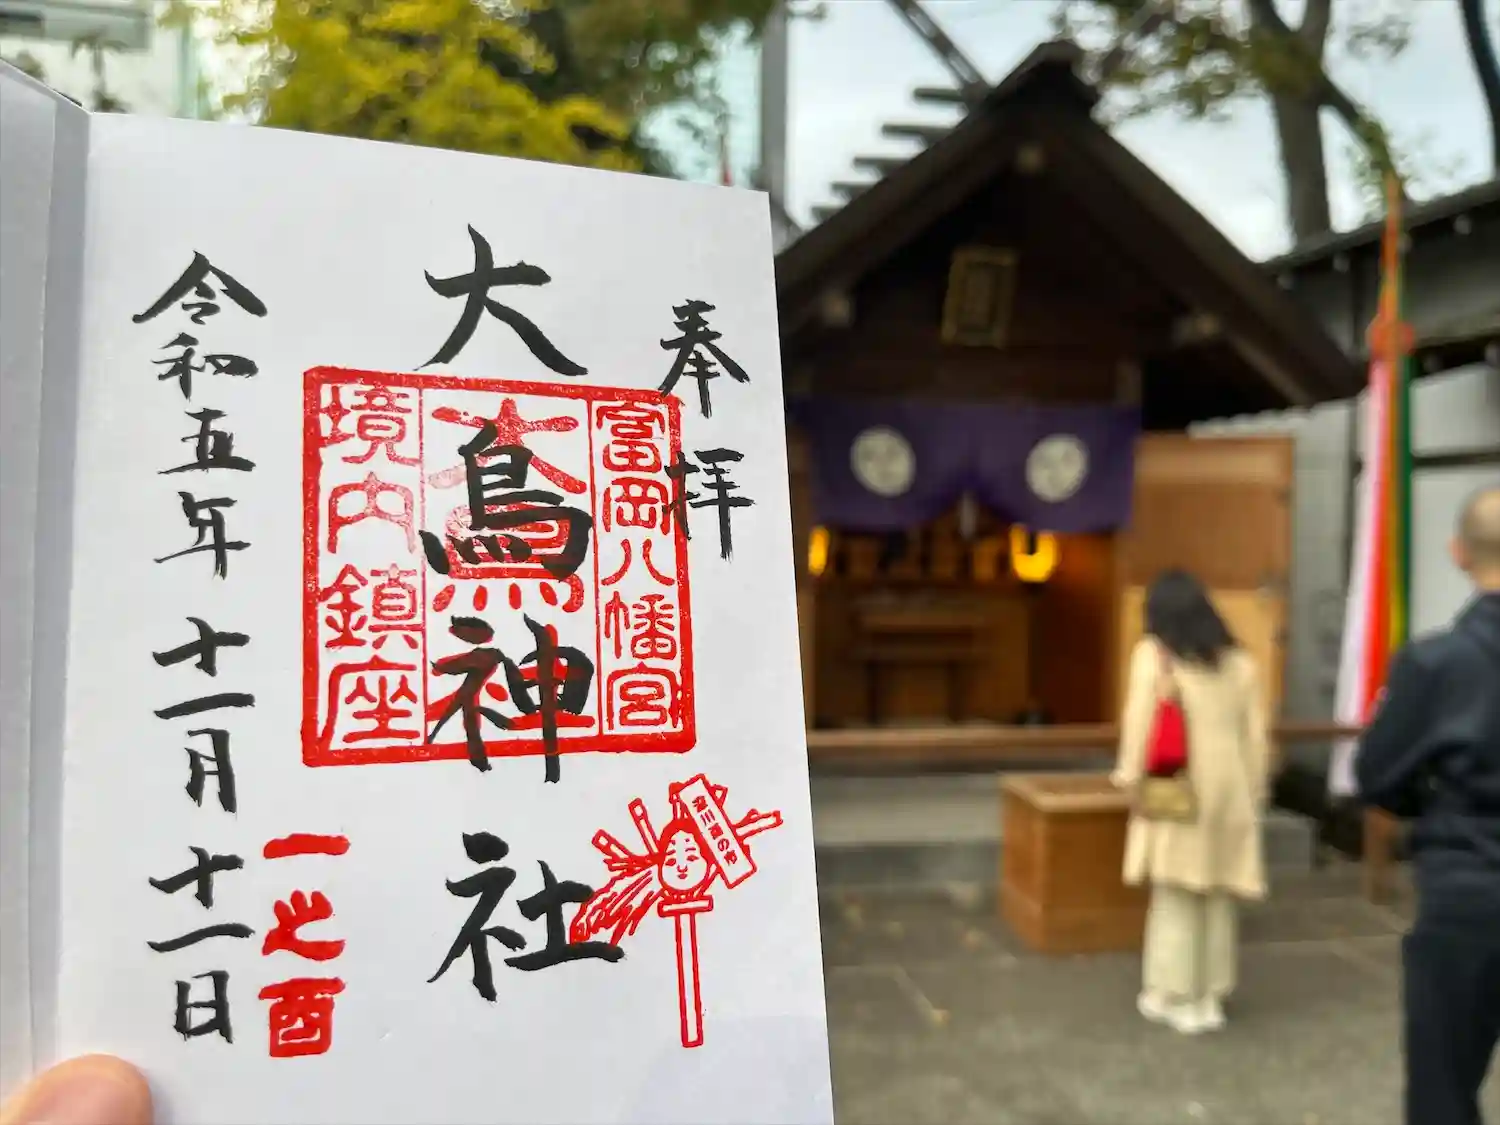 奉拝
大鳥神社
富岡八幡宮
大鳥神社
境内鎮座
令和五年十一月十一日
一之酉